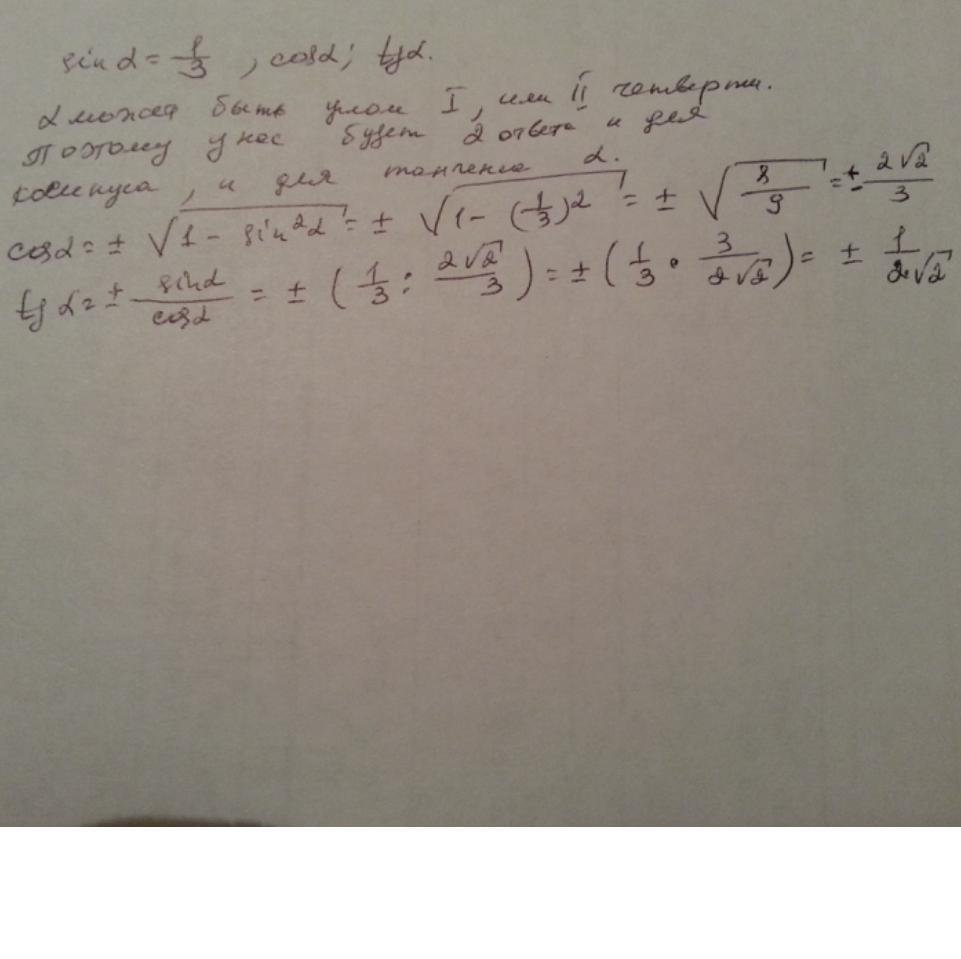 sin α = 1/3 , cos α; tg α.
α может быть углом I, или II четверти.
Поэтому у нас будет 2 ответа и для
косинуса, и для тангенса α.
cos α = ± √(1 - sin²α) = ± √(1 - (1/3)²) = ± √(8/9) = ± 2√2/3
tg α = ± sin α/cos α = ± (1/3 : 2√2/3) = ± (1/3 · 3/2√2) = ± 1/2√2